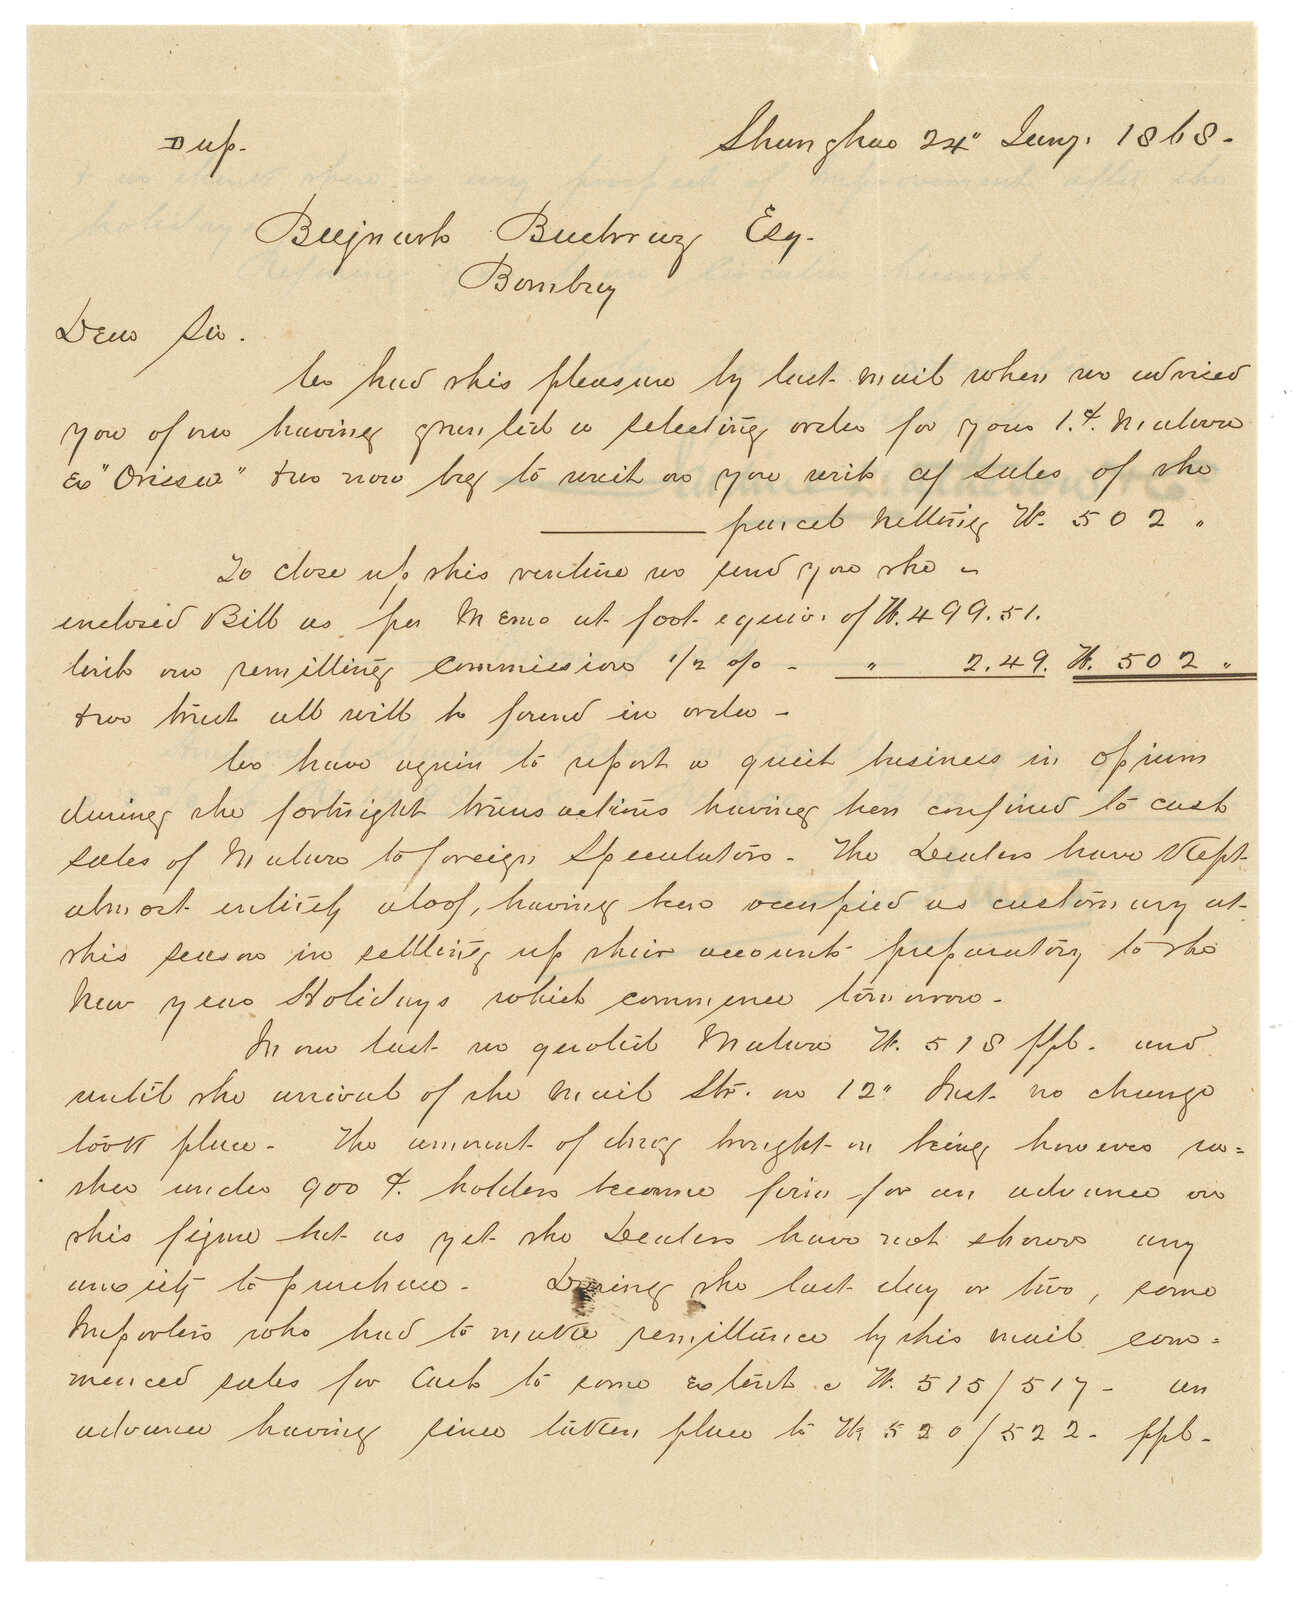 Dup.
Shanghae 24" Jany. 1868.
Esq.
Bombay
Dear Sir.
We had this pleasure by last mail when we advised
you of our having granted a selecting order for your 1 ct. Malwa
Ex "Orissa" & we now beg to wait on you with a/s sales of the
parcel netting Tls. 502 "
To close up this venture we send you the
enclosed Bill as per Memo at foot equiv. of Tls. 499.51.
with our remitting commission 1/2 o/o - " 2.49. Tls. 502 "
& we trust all will be found in order -
We have again to report a quiet business in opium
during the fortnight transactions having been confined to cash
sales of Malwa to foreign Speculators - The Dealers have kept
almost entirely aloof, having been occupied as customary at
this season in settling up their accounts preparatory to the
New year Holidays which commence tomorrow -
In our last we quoted Malwa Tls. 518 ppl. and
until the arrival of the mail Str. on 12" Inst. no change
took place - The amount of drug brought on being however ra=
ther under 900 cts. holders became firm for an advance on
this figure but as yet the Dealers have not shown any
anxiety to purchase - During the last day or two, some
Importers who had to make remittance by this mail com=
menced sales for Cash to some extent @ Tls. 515/517 - an
advance having since taken place to Tls 520/522 - ppl -